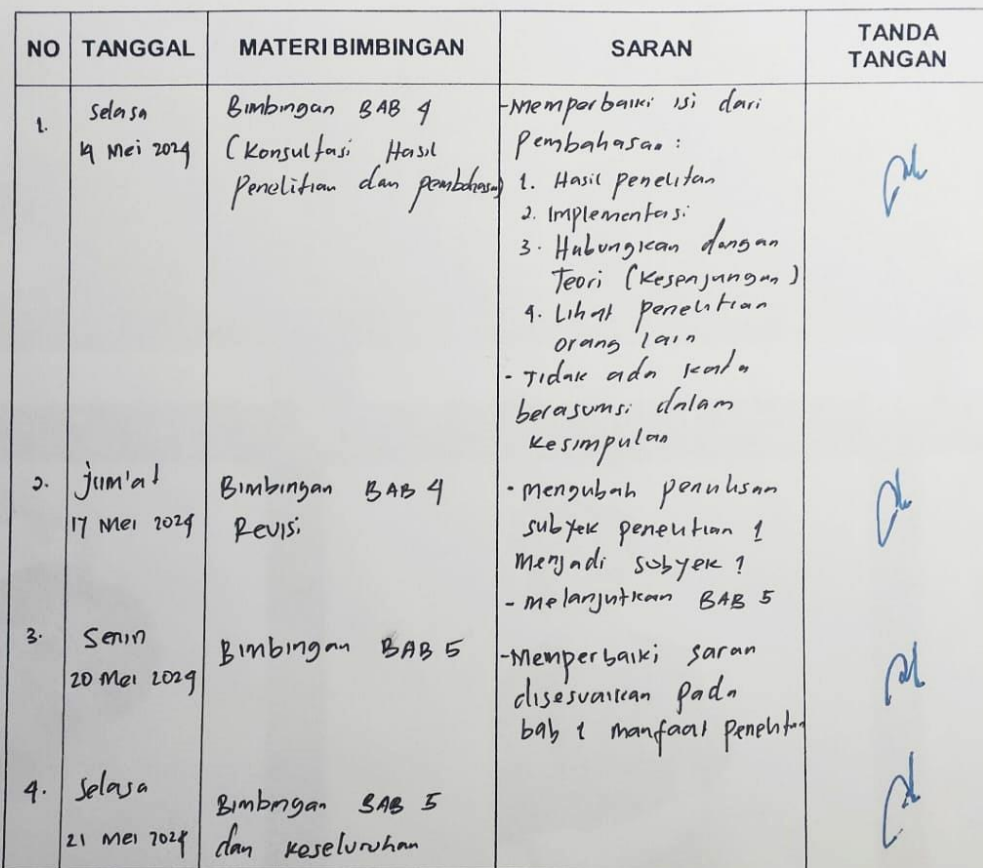 NO TANGGAL MATERI BIMBINGAN SARAN TANDA TANGAN
1.
Selasa
14 Mei 2024
Bimbingan BAB 4
(Konsultasi Hasil
Penelitian dan pembahasan)
-Memperbaiki isi dari
Pembahasan :
1. Hasil penelitan
2. Implementasi
3. Hubungkan dengan
Teori (Kesenjangan)
4. Lihat penelitian
orang lain
- Tidak ada kata
berasumsi dalam
kesimpulan
2.
Jum'at
17 Mei 2024
Bimbingan BAB 4
Revisi
- mengubah penulisan
subyek penelitian 1
menjadi subyek 1
- melanjutkan BAB 5
3.
Senin
20 Mei 2024
Bimbingan BAB 5
-Memperbaiki saran
disesuaikan pada
bab 1 manfaat Penelitian
4.
Selasa
21 Mei 2024
Bimbingan BAB 5
dan keseluruhan